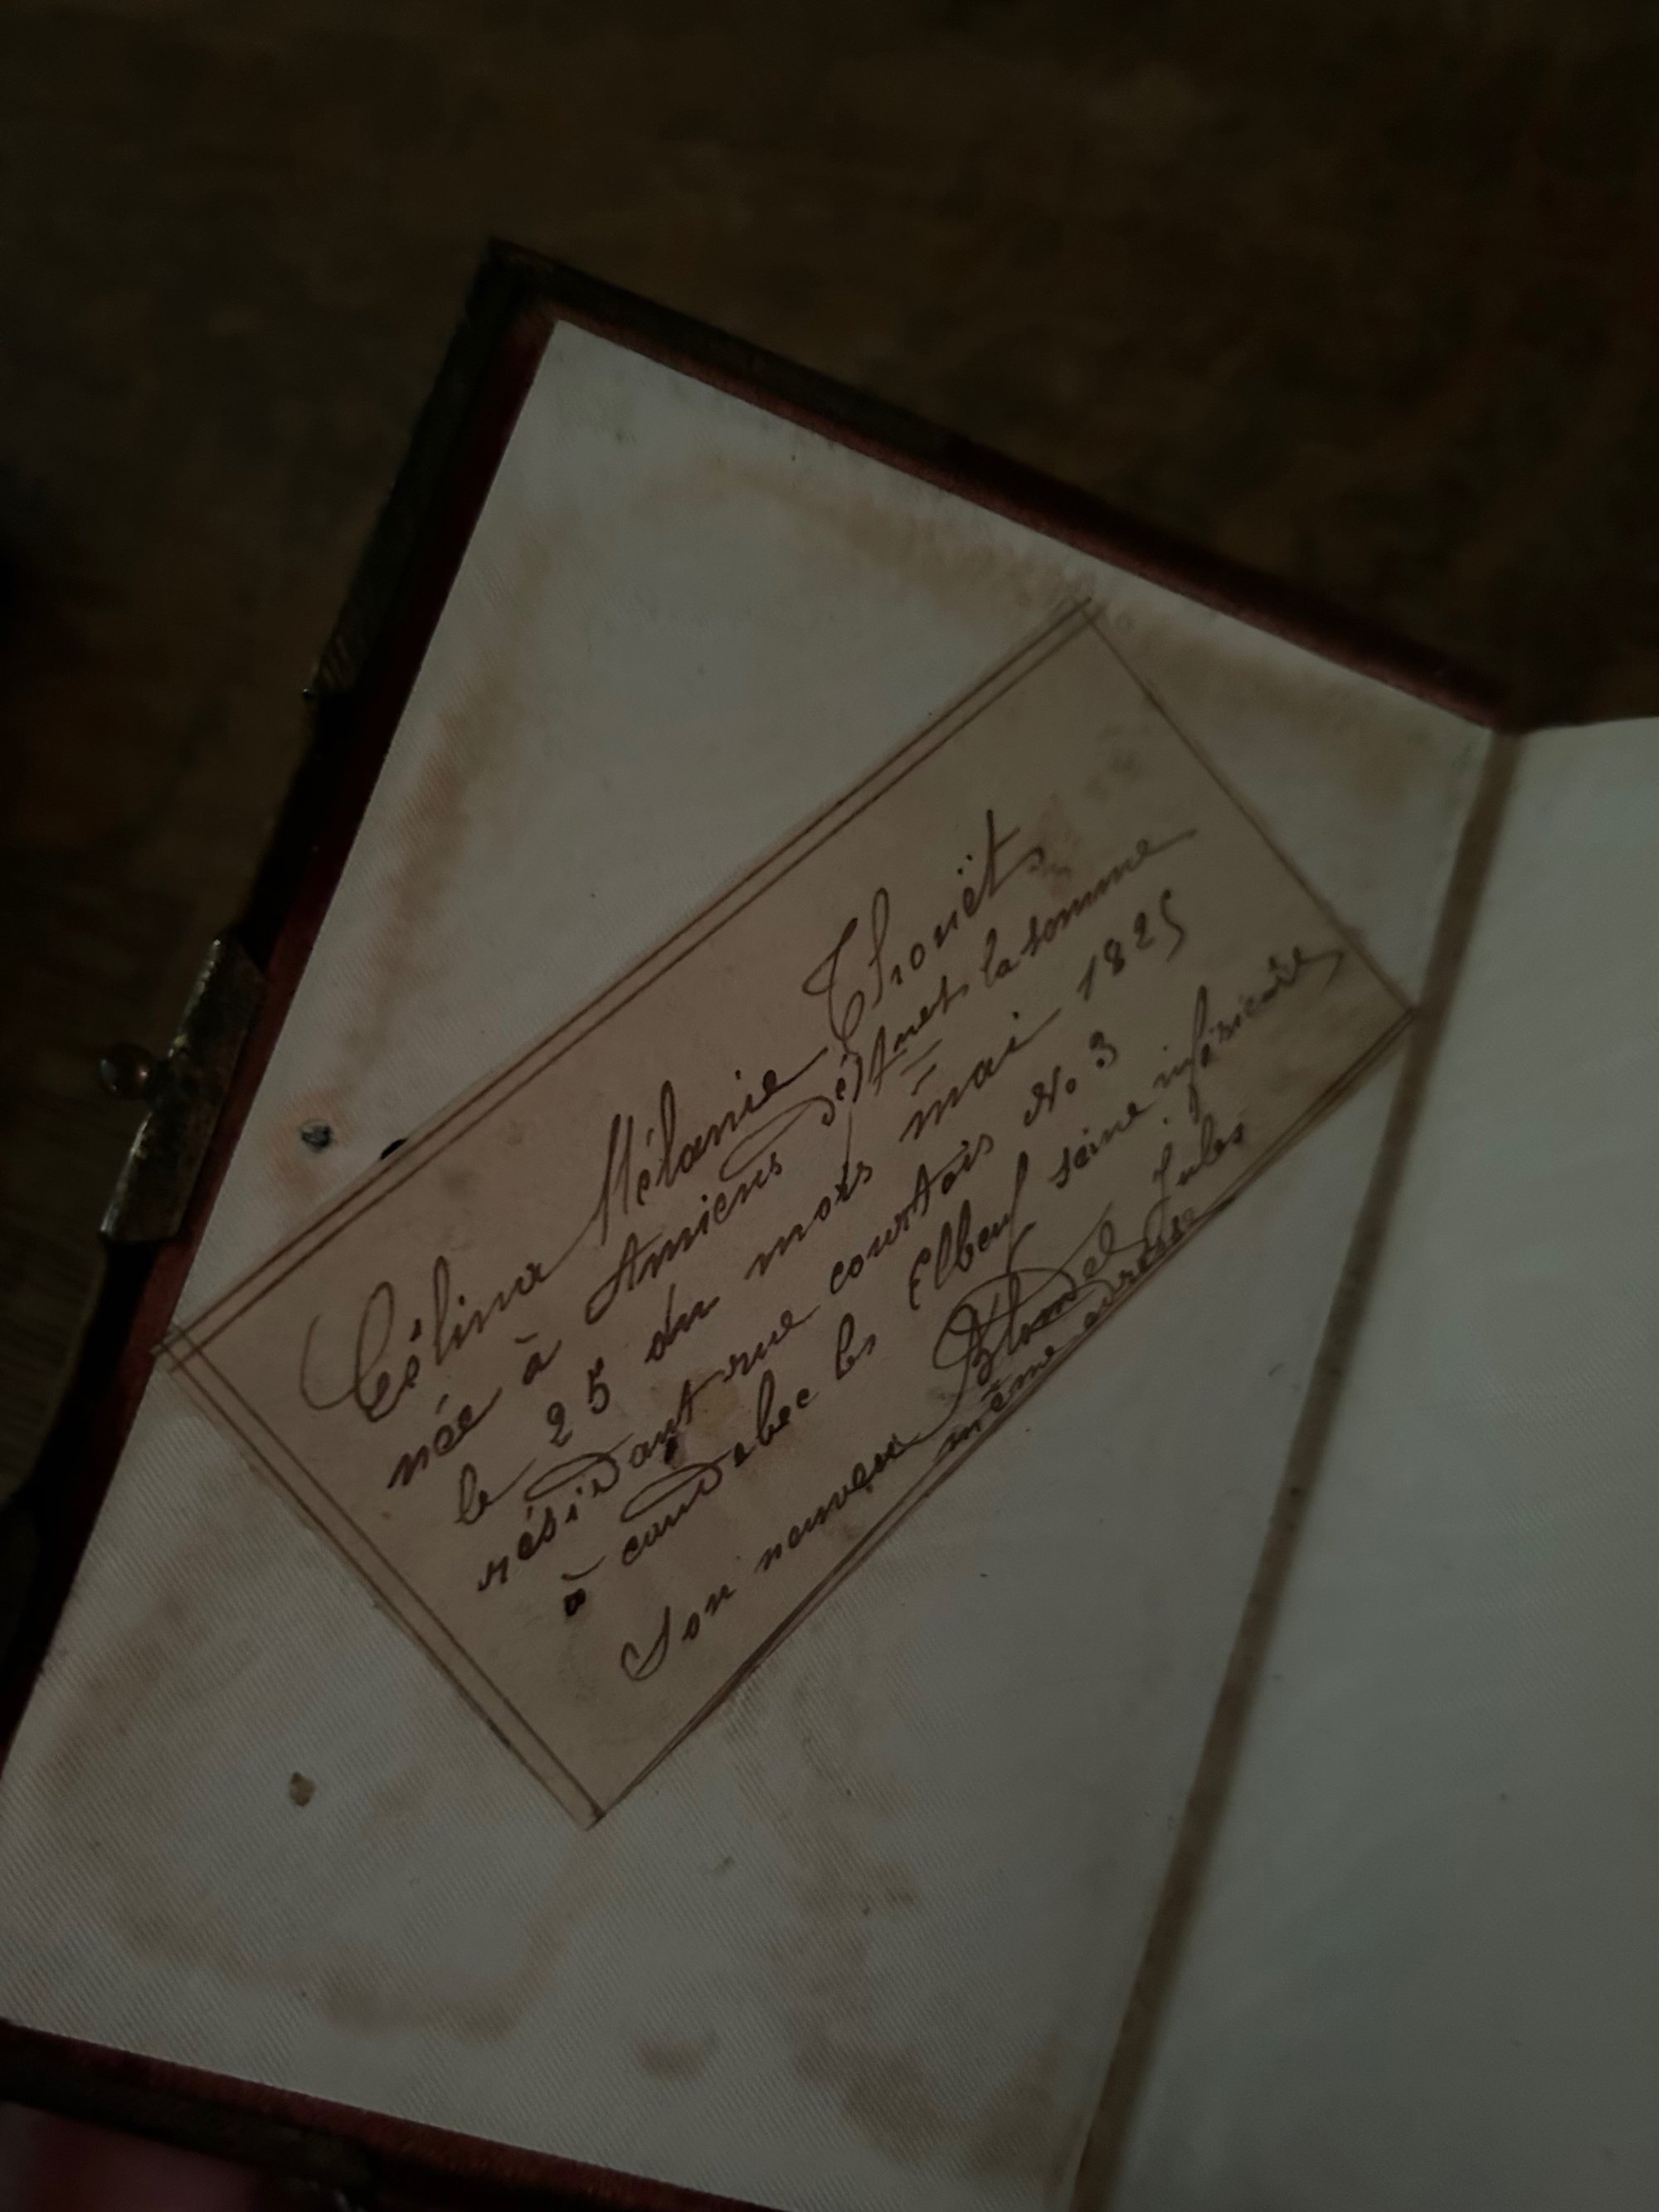 Célina Mélanie Thoriët
née à Amiens dépt la somme
le 25 du mois mai 1825
résidant rue courtois No 3
à caudebec les Elbeuf seine inférieure
Son neuveu Blondel Jules
même adresse